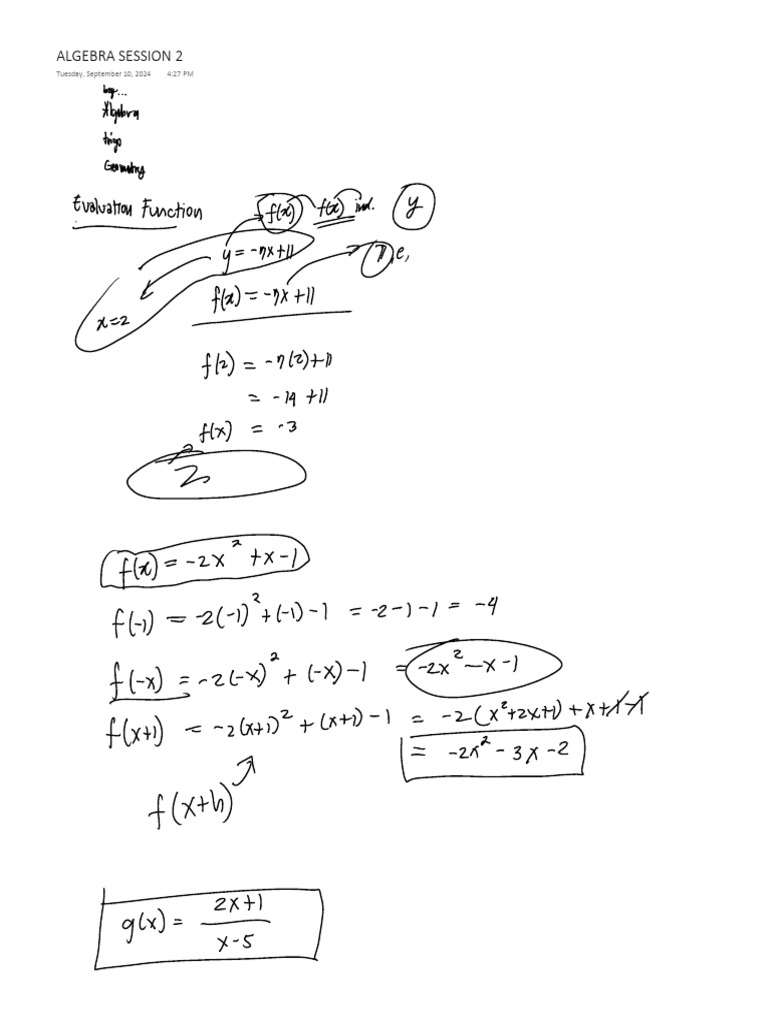 ALGEBRA SESSION 2
Tuesday, September 10, 2024 4:27 PM
Algebra
trigo
Geometry
Evaluation Function f(x) f(x) ind. y
y = -7x+11 π, e,
f(x) = -7x+11
x=2
f(2) = -7(2)+11
= -14 +11
f(x) = -3
2
f(x) = -2x² + x - 1
f(-1) = -2(-1)² + (-1) - 1 = -2 - 1 - 1 = -4
f(-x) = -2(-x)² + (-x) - 1 = -2x² - x - 1
f(x+1) = -2(x+1)² + (x+1) - 1 = -2(x²+2x+1) + x + 1 - 1
= -2x² - 3x - 2
f(x+h)
g(x) = 2x+1
x-5